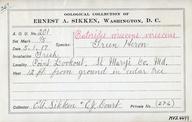 OOLOGICAL COLLECTION OF
ERNEST A. SIKKEN, WASHINGTON, D. C.
A. O. U. No. 201
Butorides virescens virescens
Set Mark
Species: Green Heron
Date 5.1.19
Incubation: Fresh
Locality Point Lookout St. Marys Co. Md.
Nest 12 ft. from ground in cedar tree
Collector E.A. Sikken & C.J. Court
Private No. (276)